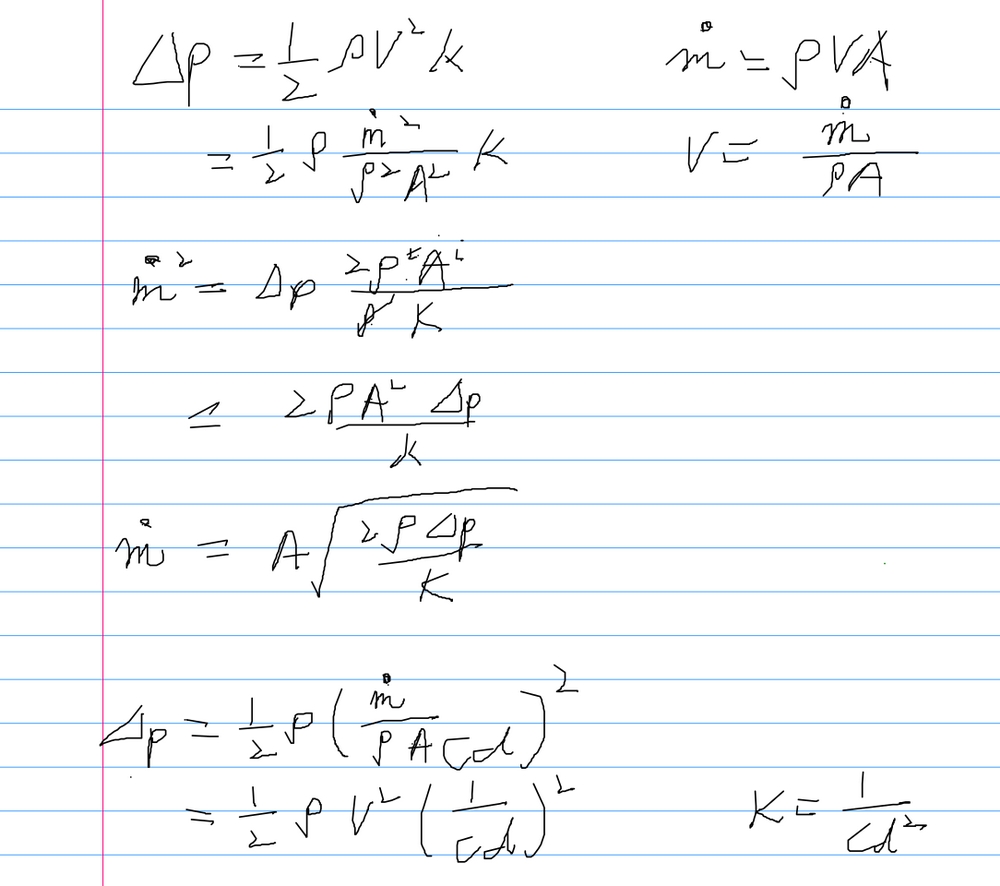 Δp = 1/2 ρV² k    ṁ = ρVA
= 1/2 ρ ṁ²/(ρ²A²) K    V = ṁ/(ρA)
ṁ² = Δp 2ρ²A²/(ρ K)
= 2ρA² Δp/k
ṁ = A√(2ρΔp/K)
Δp = 1/2 ρ (ṁ/(ρA Cd))²
= 1/2 ρ V² (1/Cd)²    K = 1/Cd²